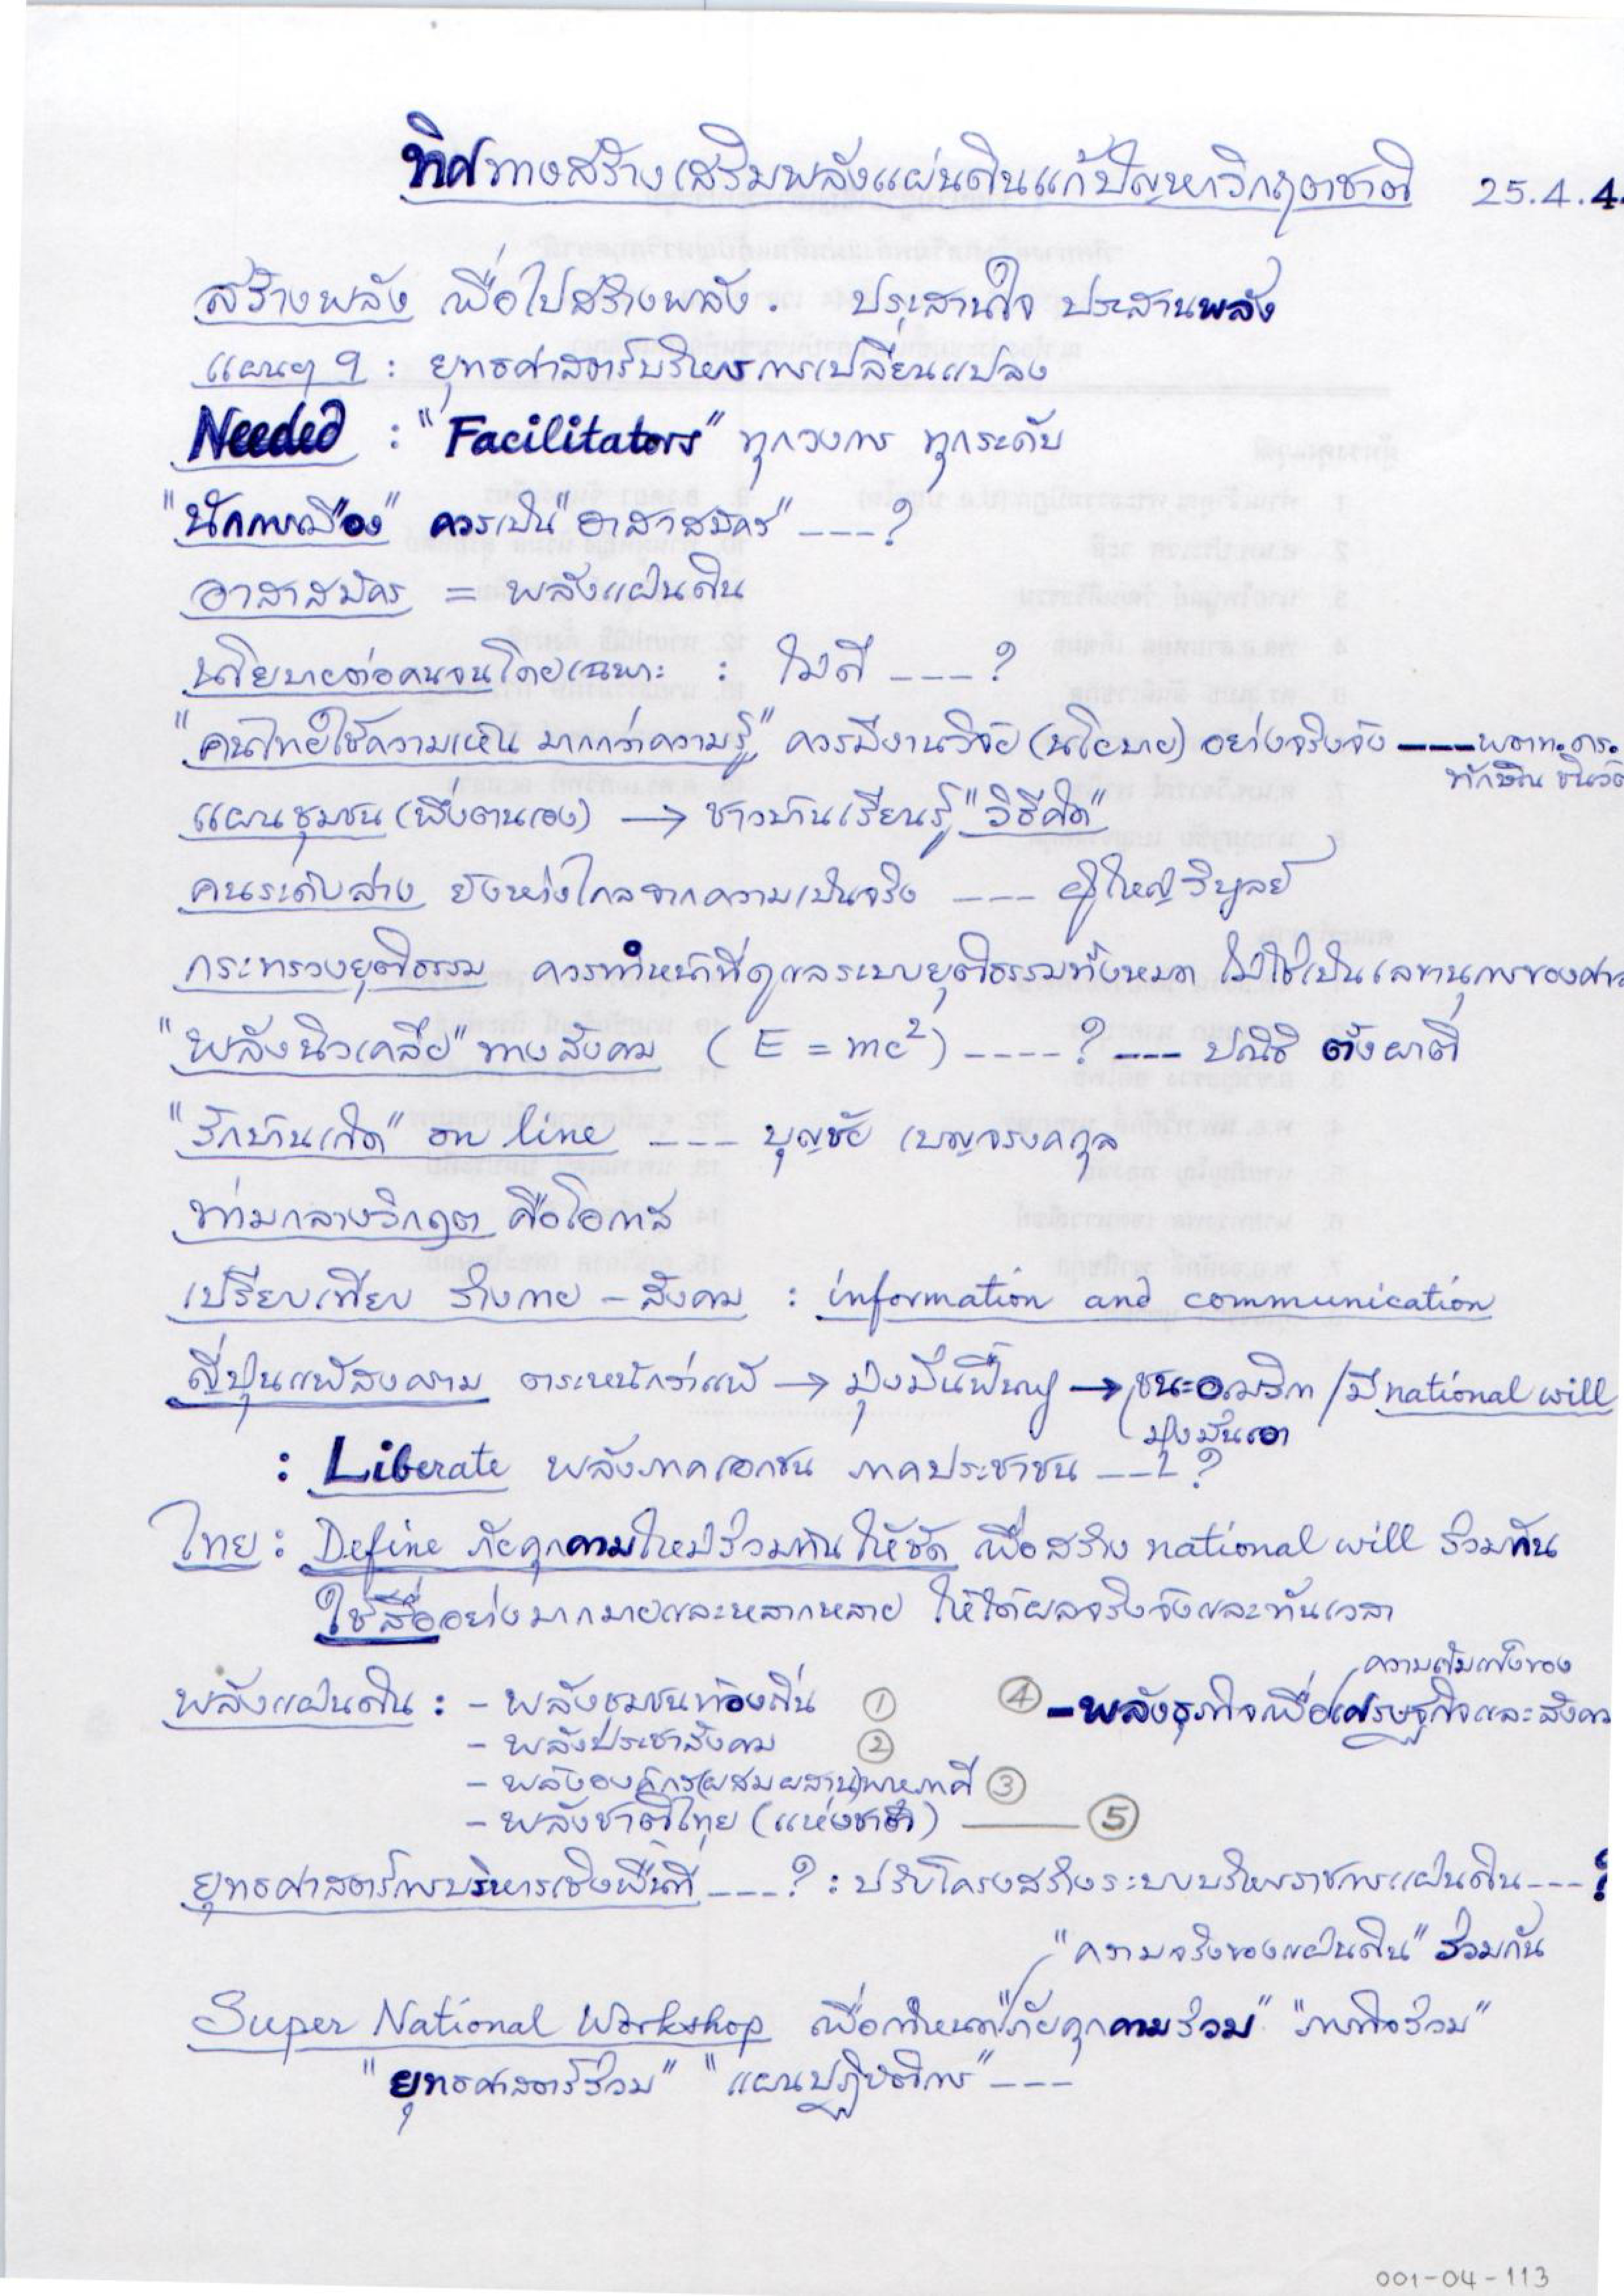 ทิศทางสร้างเสริมพลังแผ่นดินแก้ปัญหาวิกฤตชาติ 25.4.4
สร้างพลัง เพื่อไปสร้างพลัง. ประสานใจ ประสานพลัง
แผนฯ 9 : ยุทธศาสตร์บริหารการเปลี่ยนแปลง
Needed : "Facilitators" ทุกวงการ ทุกระดับ
"นักการเมือง" ควรเป็น "อาสาสมัคร" ----?
อาสาสมัคร = พลังแผ่นดิน
นโยบายต่อคนจนโดยเฉพาะ : ไม่ดี ----?
"คนไทยใช้ความเห็น มากกว่าความรู้" ควรมีงานวิจัย (นโยบาย) อย่างจริงจัง ---- พตท.ดร.
ทักษิณ ชินวัต
แผนชุมชน (พึ่งตนเอง) → ชาวบ้านเรียนรู้ "วิธีคิด"
คนระดับล่าง ยังห่างไกลจากความเป็นจริง ---- ผู้ใหญ่วิบูลย์
กระทรวงยุติธรรม ควรทำหน้าที่ดูแลระบบยุติธรรมทั้งหมด ไม่ใช่เป็นเลขานุการของศา
"พลังนิวเคลีย" ทางสังคม (E = mc²) ----? ---- ปณิธิ ตั้งผาติ
"รักบ้านเกิด" on line ---- บุญชัย เบญจรงคกุล
ท่ามกลางวิกฤต คือโอกาส
เปรียบเทียบ ร่างกาย - สังคม : information and communication
ญี่ปุ่นแพ้สงคราม ตระหนักว่าแพ้ → มุ่งมั่นฟื้นฟู → ชนะอเมริกา / มี national will
มุ่งมั่นเอา
: Liberate พลังภาคเอกชน ภาคประชาชน ----?
ไทย : Define ภัยคุกคามใหม่ร่วมกันให้ชัด เพื่อสร้าง national will ร่วมกัน
ใช้สื่ออย่างมากมายและหลากหลาย ให้ได้ผลจริงจังและทันเวลา
ความเข้มแข็งของ
พลังแผ่นดิน : - พลังชุมชนท้องถิ่น ① ④ - พลังธุรกิจเพื่อเศรษฐกิจและสังคม
- พลังประชาสังคม ②
- พลังองค์กร(ผสมผสาน)พหุภาคี ③
- พลังชาติไทย (แห่งชาติ) ——— ⑤
ยุทธศาสตร์การบริหารเชิงพื้นที่ ----? : ปรับโครงสร้างระบบบริหารราชการแผ่นดิน ----?
"ความจริงของแผ่นดิน" ร่วมกัน
Super National Workshop เพื่อกำหนด "ภัยคุกคามร่วม" "ภารกิจร่วม"
"ยุทธศาสตร์ร่วม" "แผนปฏิบัติการ" ----
001-04-113